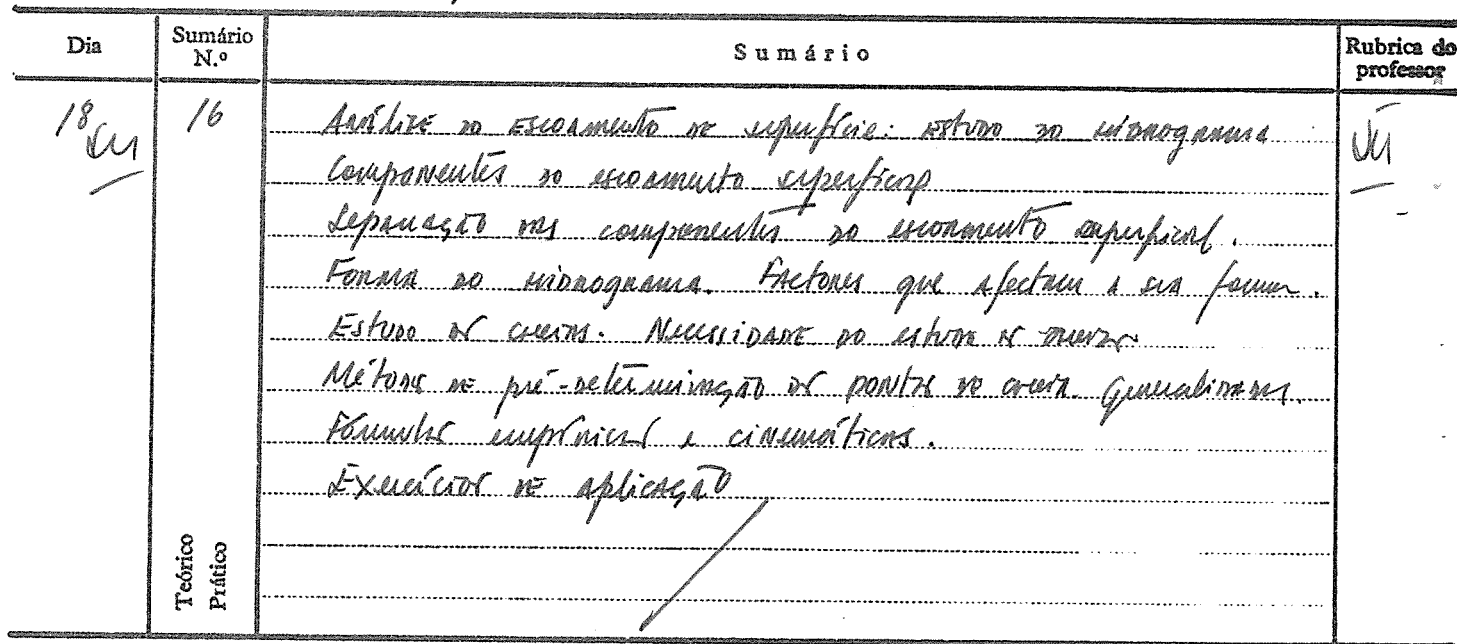 Dia
Sumário N.º
Sumário
Rubrica do professor
18
16
Análise do escoamento de superfície: estudo do hidrograma
Componentes do escoamento superficial
Separação das componentes do escoamento superficial.
Forma do hidrograma. Factores que afectam a sua forma.
Estudo de cheias. Necessidade do estudo de cheias
Métodos de pré-determinação de pontas de cheia. Generalidades.
Fórmulas empíricas e cinemáticas.
Exercícios de aplicação
Teórico
Prático